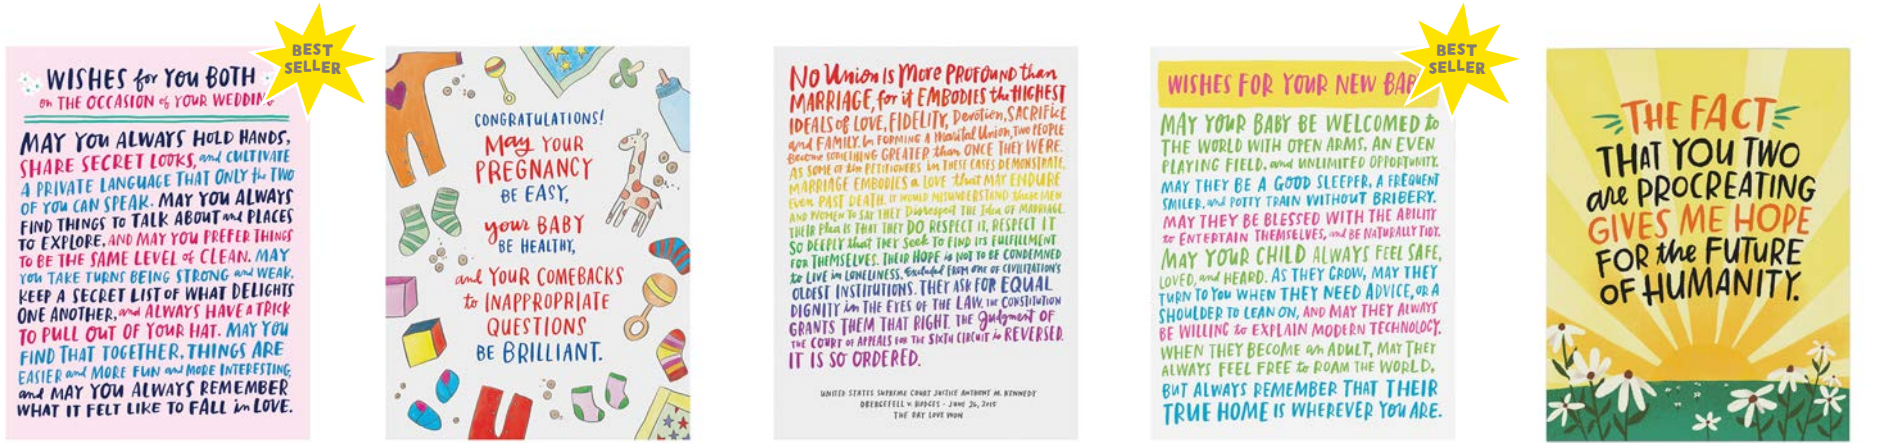 BEST
SELLER
WISHES for YOU BOTH
on THE OCCASION of YOUR WEDDING
MAY YOU ALWAYS HOLD HANDS,
SHARE SECRET LOOKS, and CULTIVATE
A PRIVATE LANGUAGE THAT ONLY the TWO
OF YOU CAN SPEAK. MAY YOU ALWAYS
FIND THINGS TO TALK ABOUT and PLACES
TO EXPLORE, AND MAY YOU PREFER THINGS
TO BE THE SAME LEVEL of CLEAN. MAY
YOU TAKE TURNS BEING STRONG and WEAK,
KEEP A SECRET LIST OF WHAT DELIGHTS
ONE ANOTHER, and ALWAYS HAVE A TRICK
TO PULL OUT OF YOUR HAT. MAY YOU
FIND THAT TOGETHER, THINGS ARE
EASIER and MORE FUN and MORE INTERESTING,
and MAY YOU ALWAYS REMEMBER
WHAT IT FELT LIKE TO FALL in LOVE.
CONGRATULATIONS!
May YOUR
PREGNANCY
BE EASY,
your BABY
BE HEALTHY,
and YOUR COMEBACKS
to INAPPROPRIATE
QUESTIONS
BE BRILLIANT.
NO UNION IS MORE PROFOUND than
MARRIAGE, for it EMBODIES the HIGHEST
IDEALS of LOVE, FIDELITY, Devotion, SACRIFICE
and FAMILY. In FORMING A Marital Union, TWO PEOPLE
Become SOMETHING GREATER than ONCE THEY WERE.
AS SOME of the PETITIONERS in THESE CASES DEMONSTRATE,
MARRIAGE EMBODIES a LOVE that MAY ENDURE
EVEN PAST DEATH. IT WOULD MISUNDERSTAND these MEN
AND WOMEN TO SAY THEY Disrespect THE Idea OF MARRIAGE.
THEIR Plea IS THAT THEY DO RESPECT IT, RESPECT IT
SO DEEPLY that THEY Seek TO FIND ITS FULFILLMENT
FOR THEMSELVES. THEIR HOPE is NOT TO BE CONDEMNED
to LIVE in LONELINESS, Excluded FROM ONE OF CIVILIZATION'S
OLDEST INSTITUTIONS. THEY ASK FOR EQUAL
DIGNITY in THE EYES OF THE LAW. The CONSTITUTION
GRANTS THEM THAT RIGHT. THE Judgment OF
THE COURT OF APPEALS FOR THE SIXTH CIRCUIT is REVERSED.
IT IS SO ORDERED.
UNITED STATES SUPREME COURT JUSTICE ANTHONY M. KENNEDY
OBERGEFELL v. HODGES - JUNE 26, 2015
THE DAY LOVE WON
BEST
SELLER
WISHES FOR YOUR NEW BABY
MAY YOUR BABY BE WELCOMED to
THE WORLD WITH OPEN ARMS, AN EVEN
PLAYING FIELD, and UNLIMITED OPPORTUNITY.
MAY THEY BE A GOOD SLEEPER, A FREQUENT
SMILER, and POTTY TRAIN WITHOUT BRIBERY.
MAY THEY BE BLESSED WITH THE ABILITY
to ENTERTAIN THEMSELVES, and BE NATURALLY TIDY.
MAY YOUR CHILD ALWAYS FEEL SAFE,
LOVED, and HEARD. AS THEY GROW, MAY THEY
TURN TO YOU WHEN THEY NEED ADVICE, OR A
SHOULDER TO LEAN ON, AND MAY THEY ALWAYS
BE WILLING to EXPLAIN MODERN TECHNOLOGY.
WHEN THEY BECOME an ADULT, MAY THEY
ALWAYS FEEL FREE to ROAM THE WORLD,
BUT ALWAYS REMEMBER THAT THEIR
TRUE HOME IS WHEREVER YOU ARE.
THE FACT
THAT YOU TWO
are PROCREATING
GIVES ME HOPE
FOR the FUTURE
OF HUMANITY.